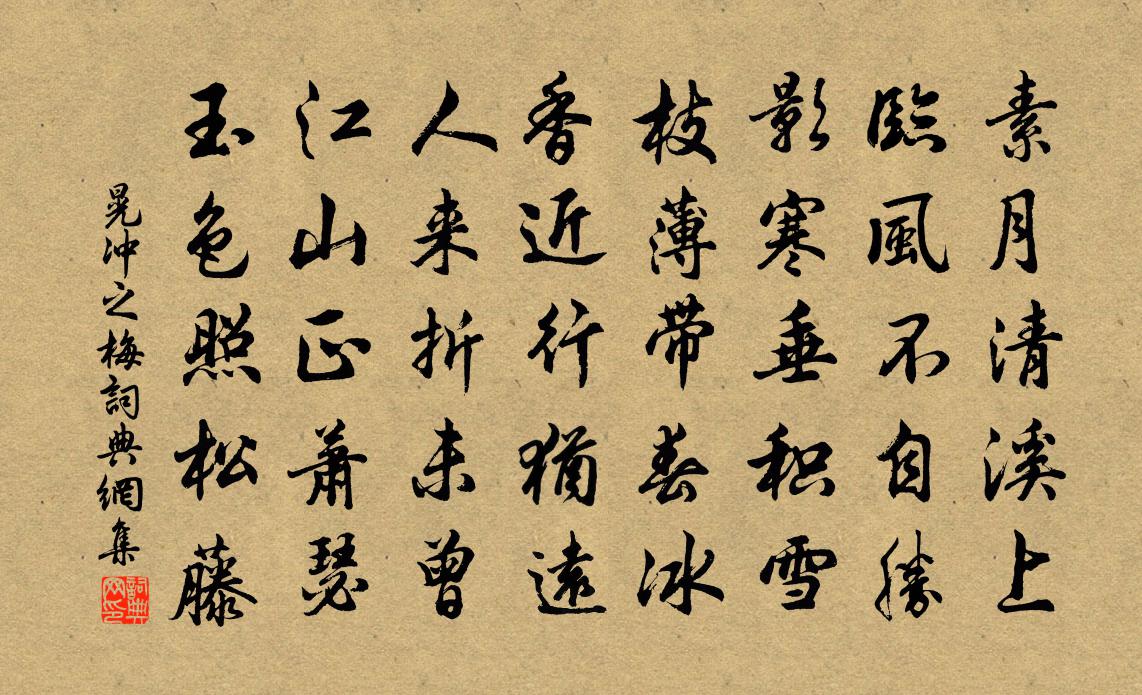 素月清溪上
臨風不自勝
影寒垂积雪
枝薄带春冰
香近行猶遠
人来折未曾
江山正萧瑟
玉色照松藤
晁冲之梅詞典網集
詞典網印